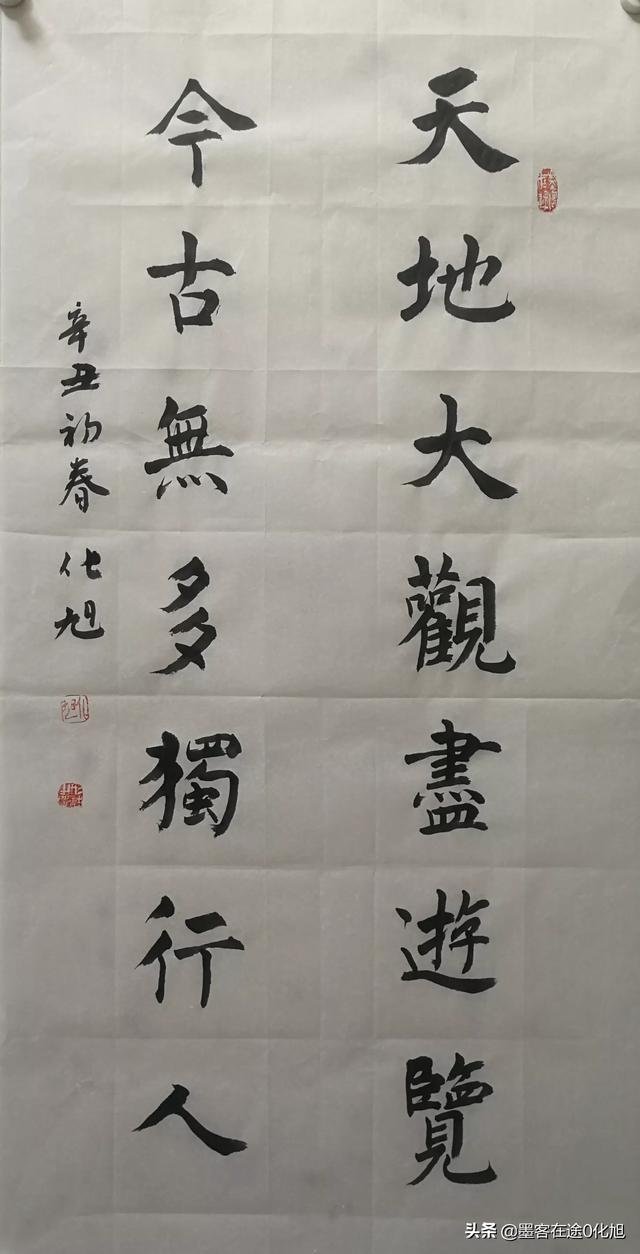 天地大觀盡遊覽
今古無多獨行人
辛丑初春 化旭
头条 @墨客在途0化旭